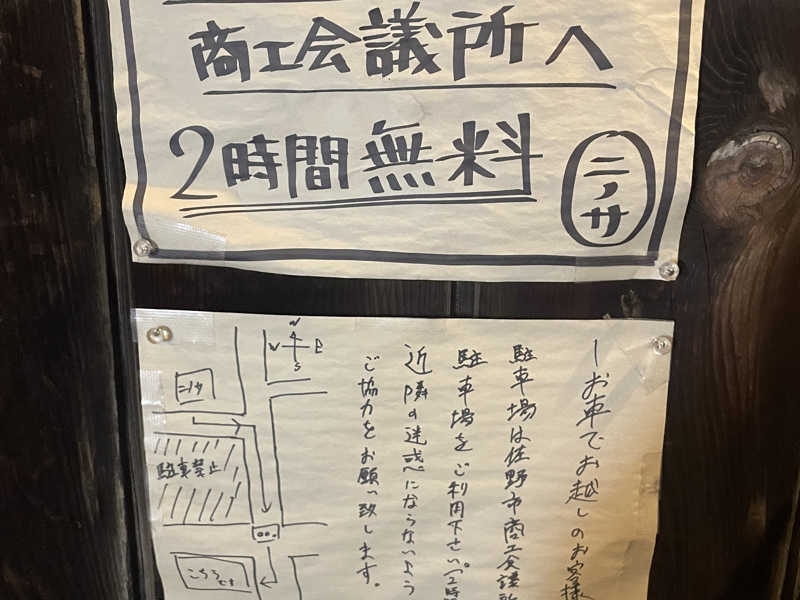 商工会議所へ
2時間無料
ニノサ
お車でお越しのお客様
駐車場は佐野市商工会議所
駐車場をご利用下さい。(2時
近隣の迷惑にならないよう
ご協力をお願い致します。
N
W
E
S
ニノサ
駐車禁止
こちらです